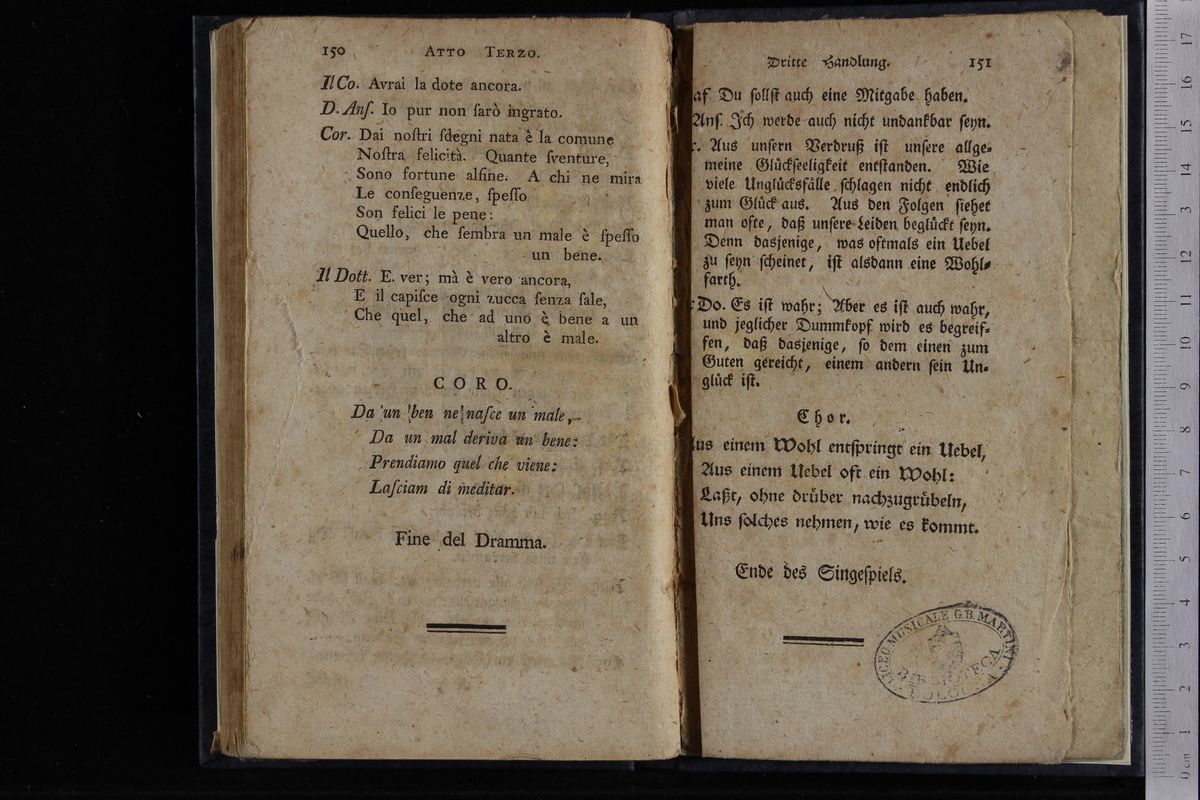 150 ATTO TERZO.
Il Co. Avrai la dote ancora.
D. Anſ. Io pur non ſarò ingrato.
Cor. Dai noſtri ſdegni nata è la comune
Noſtra felicità. Quante ſventure,
Sono fortune alfine. A chi ne mira
Le conſeguenze, ſpeſſo
Son felici le pene:
Quello, che ſembra un male è ſpeſſo
un bene.
Il Dott. E ver; mà è vero ancora,
E il capiſce ogni zucca ſenza ſale,
Che quel, che ad uno è bene a un
altro è male.
CORO.
Da un ben ne naſce un male,
Da un mal deriva un bene:
Prendiamo quel che viene:
Laſciam di meditar.
Fine del Dramma.
Dritte Handlung. 151
af. Du ſollſt auch eine Mitgabe haben.
Anſ. Ich werde auch nicht undankbar ſeyn.
r. Aus unſern Verdruß iſt unſere allge-
meine Glückſeeligkeit entſtanden. Wie
viele Unglücksfälle ſchlagen nicht endlich
zum Glück aus. Aus den Folgen ſiehet
man ofte, daß unſere Leiden beglückt ſeyn.
Denn dasjenige, was oftmals ein Uebel
zu ſeyn ſcheinet, iſt alsdann eine Wohl-
farth.
r Do. Es iſt wahr; Aber es iſt auch wahr,
und jeglicher Dummkopf wird es begreif-
fen, daß dasjenige, ſo dem einen zum
Guten gereicht, einem andern ſein Un-
glück iſt.
Chor.
us einem Wohl entſpringt ein Uebel,
Aus einem Uebel oft ein Wohl:
Laßt, ohne drüber nachzugrübeln,
Uns ſolches nehmen, wie es kommt.
Ende des Singeſpiels.
LICEO MUSICALE G.B. MARTINI
BIBLIOTECA
BOLOGNA
0 cm 1 2 3 4 5 6 7 8 9 10 11 12 13 14 15 16 17